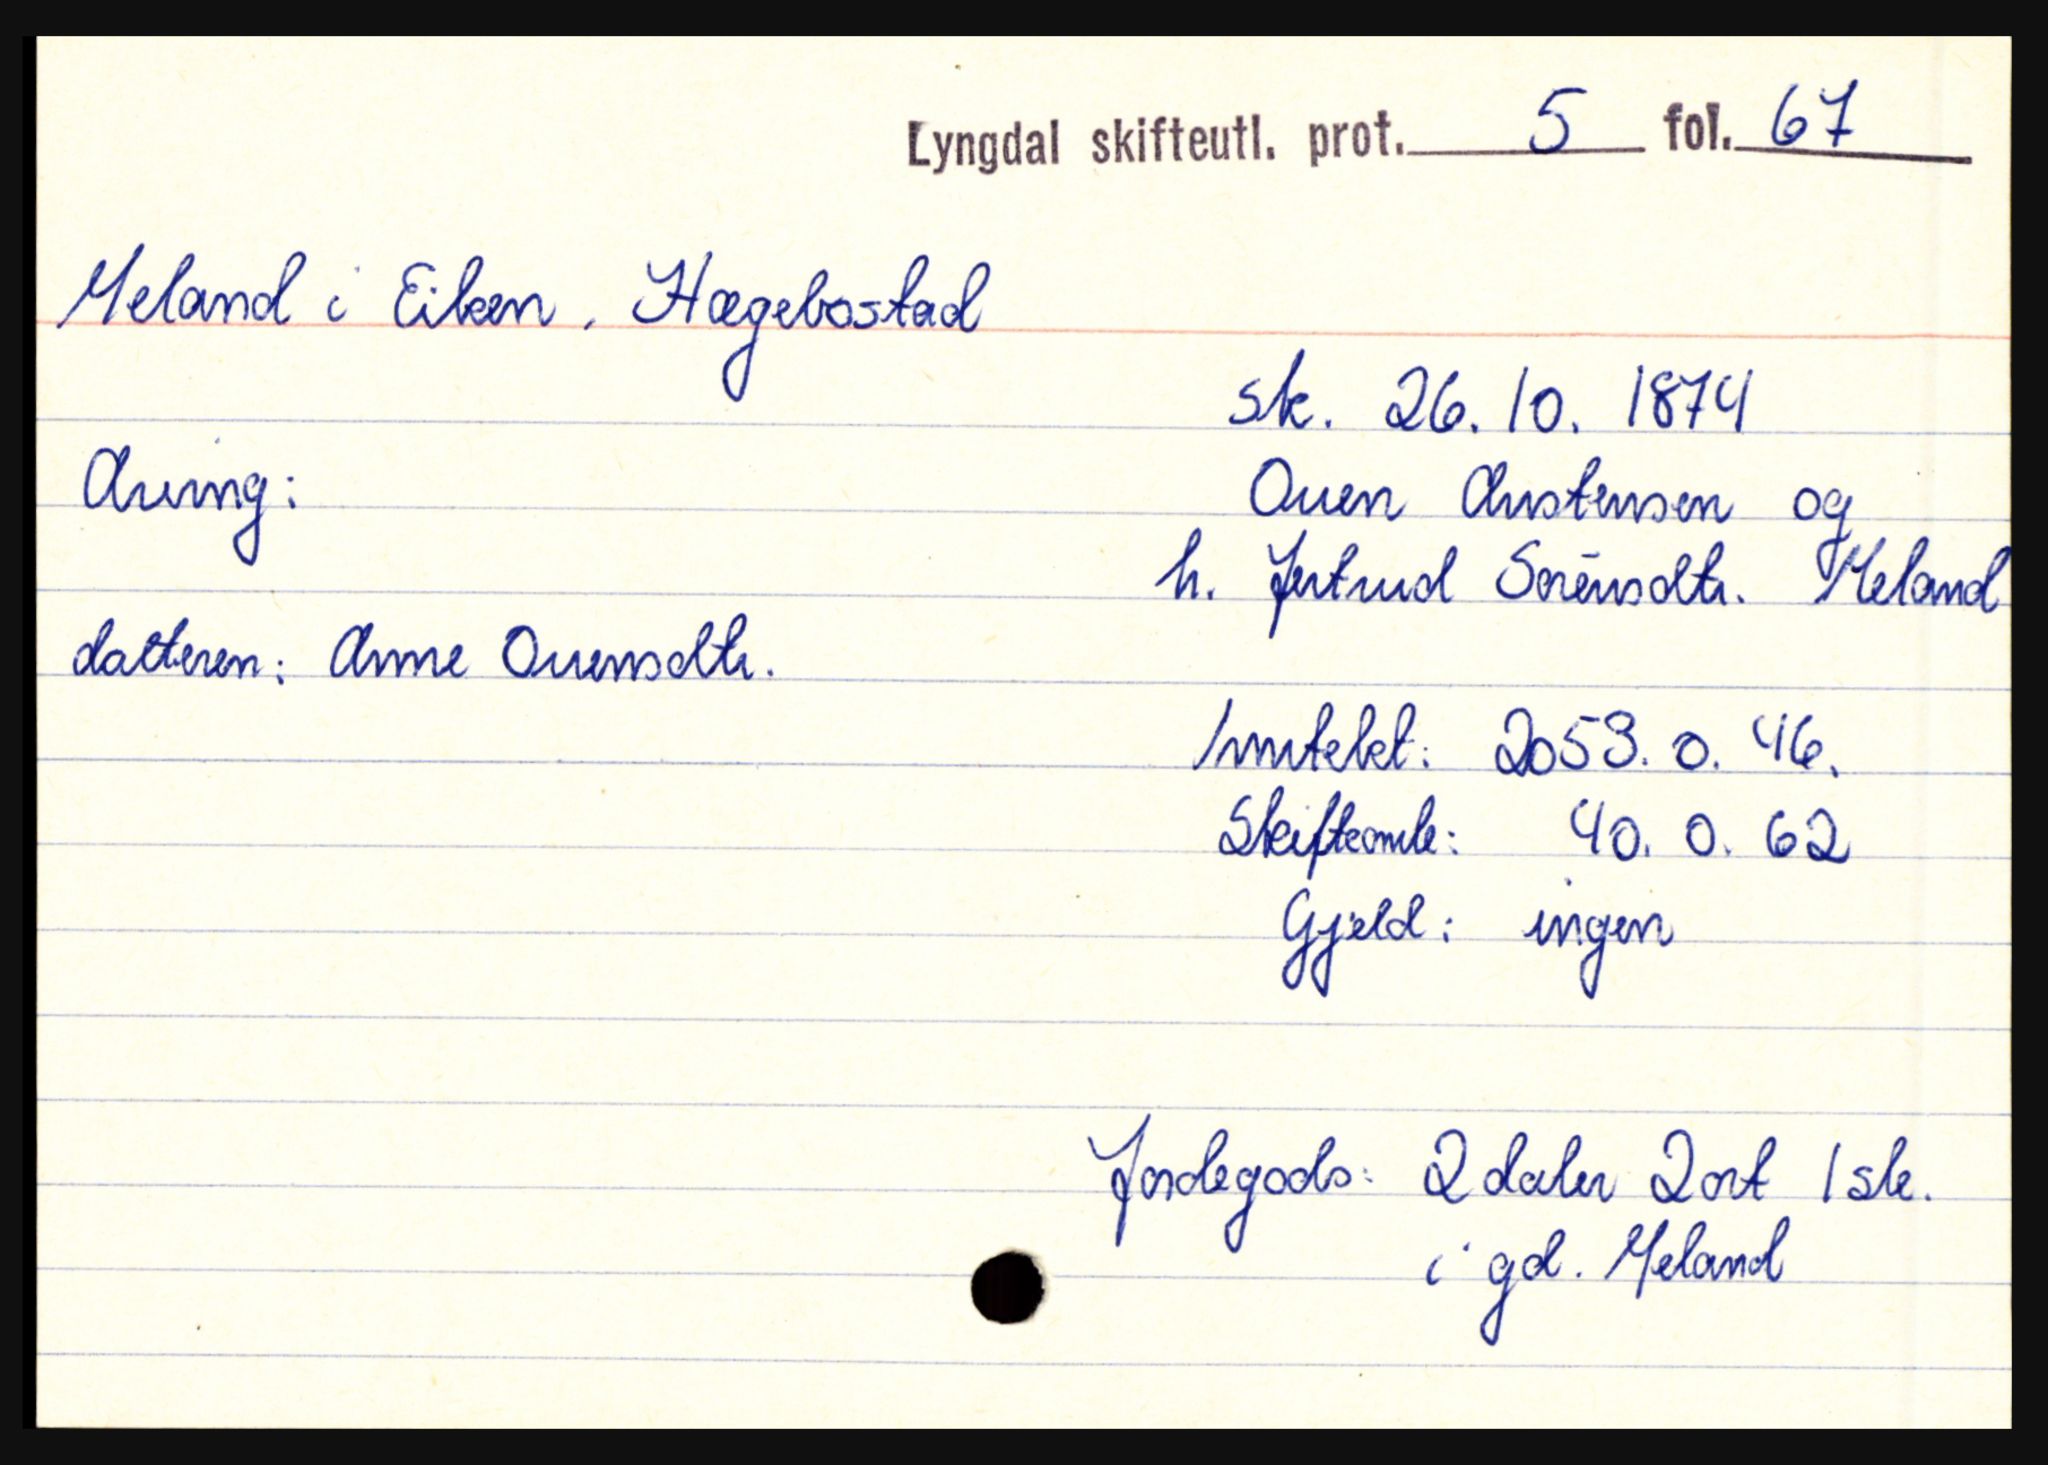 Lyngdal skifteutl. prot. 5 fol. 67
Meland i Eiken, Hægebostad
sk. 26.10. 1874
Arving:
Ouen Austensen og
h. Jertrud Sørensdtr. Meland
datteren: Anne Ouensdtr.
Inntekt: 2053. 0. 46.
Skifteomk: 40. 0. 62
Gjeld: ingen
Jordegods: 2 daler 2 ort 1 sk.
i gd. Meland